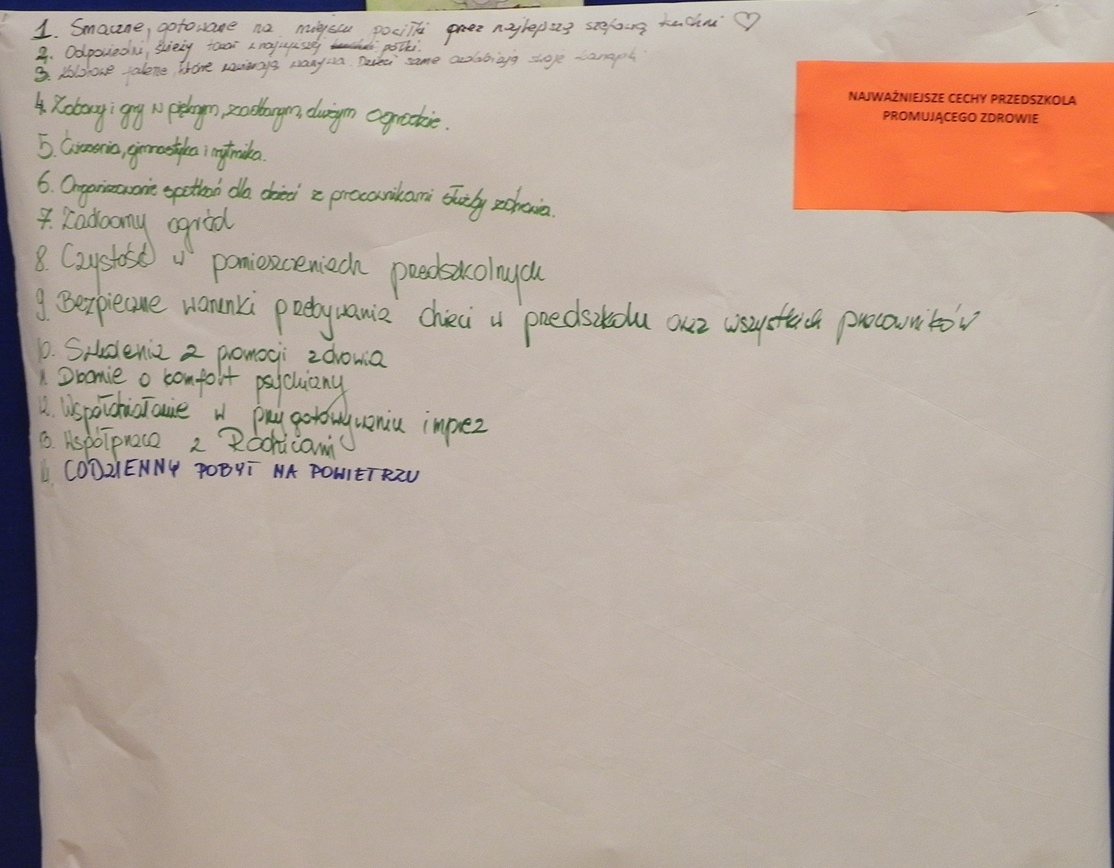 1. Smaczne, gotowane na miejscu posiłki przez najlepszą szefową kuchni ♡
2. Odpowiedni, świeży towar z najwyższej półki.
3. Kolorowe talerze, które zawierają warzywa. Dzieci same ozdabiają swoje kanapki
4. Zabawy i gry w pięknym, zadbanym, dużym ogrodzie.
5. Ćwiczenia, gimnastyka i rytmika.
6. Organizowanie spotkań dla dzieci z pracownikami służby zdrowia.
7. Zadbany ogród
8. Czystość w pomieszczeniach przedszkolnych
9. Bezpieczne warunki przebywania dzieci w przedszkolu oraz wszystkich pracowników
10. Szkolenia z promocji zdrowia
11. Dbanie o komfort psychiczny
12. Współdziałanie w przygotowywaniu imprez
13. Współpraca z Rodzicami
14. CODZIENNY POBYT NA POWIETRZU
NAJWAŻNIEJSZE CECHY PRZEDSZKOLA
PROMUJĄCEGO ZDROWIE